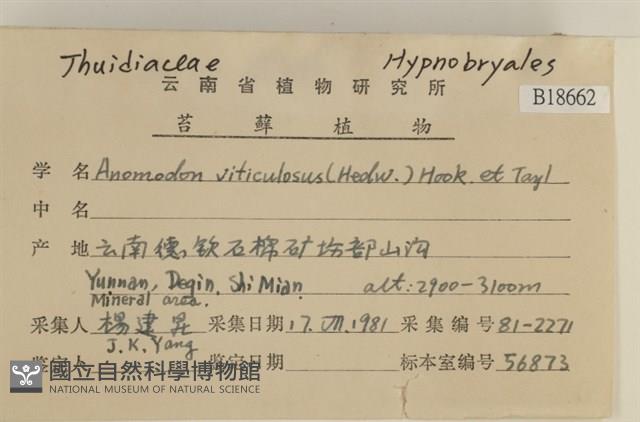 Thuidiaceae Hypnobryales
云南省植物研究所
B18662
苔藓植物
学名 Anomodon viticulosus (Hedw.) Hook. et Tayl
中名
产地 云南德钦石棉矿坊部山沟
Yunnan, Deqin, Shi Mian alt: 2900-3100m
Mineral area.
采集人 楊建昆 采集日期 17. VIII. 1981 采集编号 81-2271
J. K. Yang
鉴定人 鉴定日期 标本室编号 56873
國立自然科學博物館
NATIONAL MUSEUM OF NATURAL SCIENCE